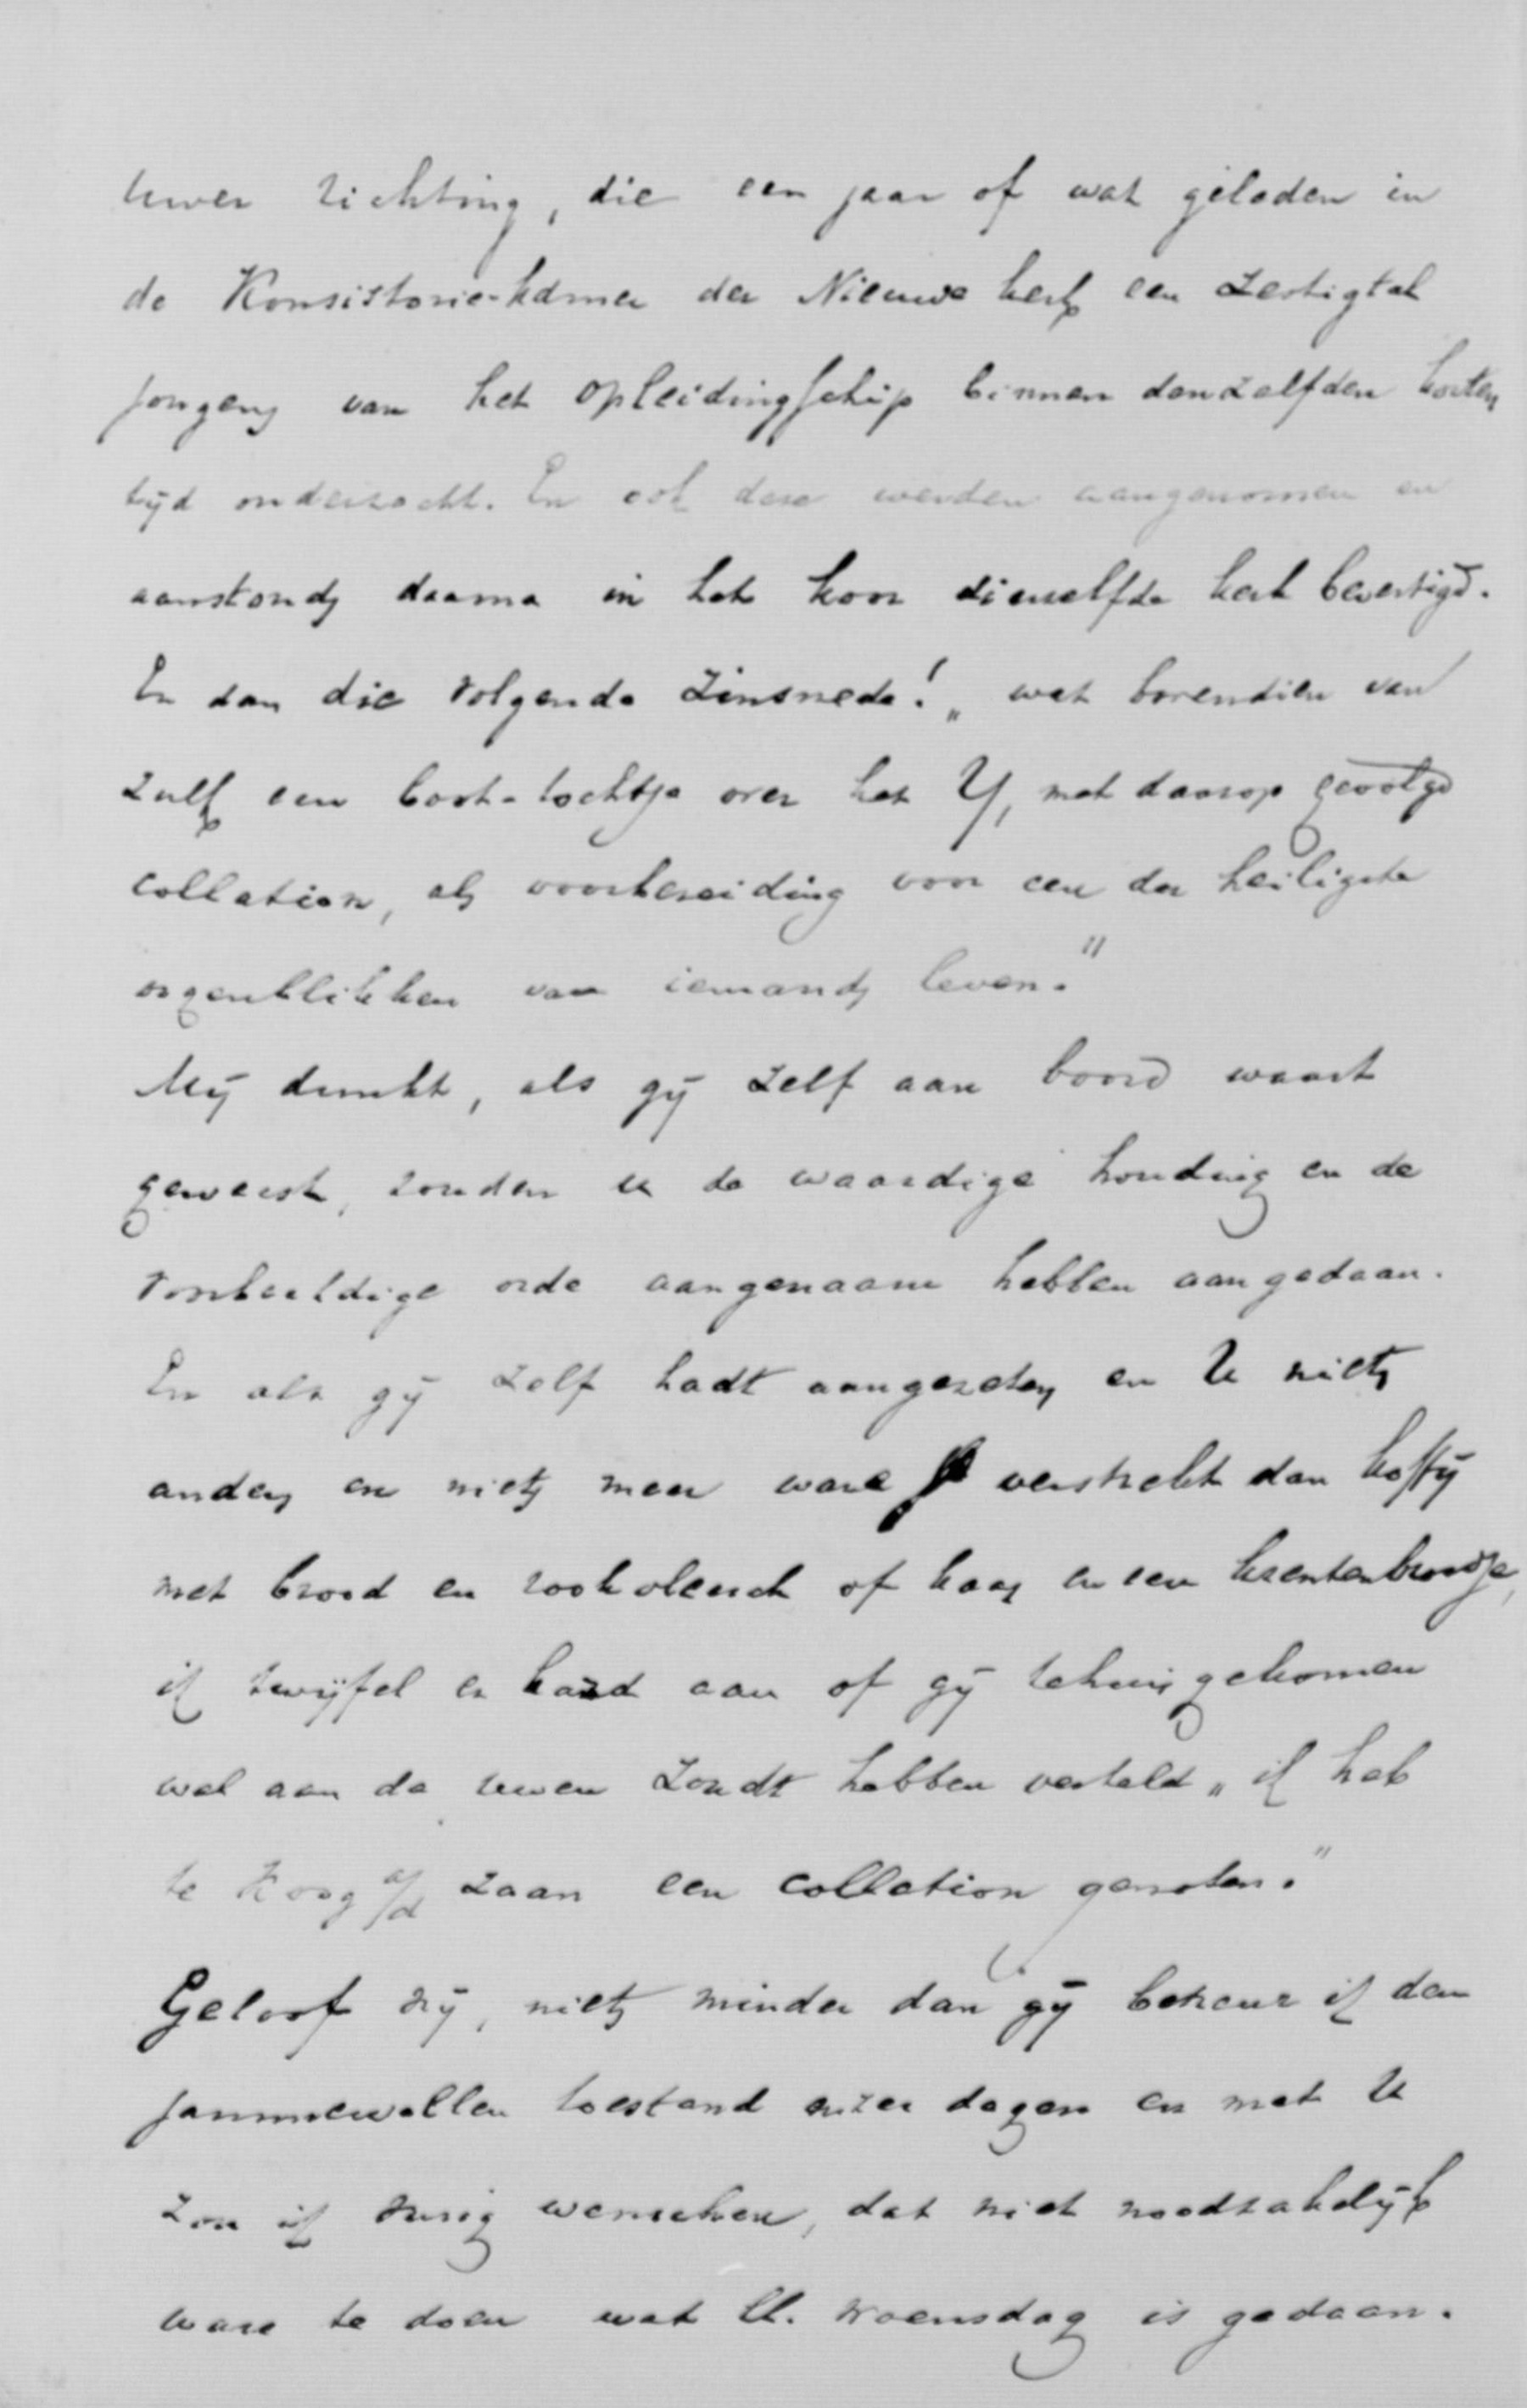 Uwer richting, die een jaar of wat geleden in
de Konsistorie-kamer der Nieuwe kerk een zestigtal
jongens van het opleidingschip binnen denzelfden korten
tijd onderzocht. En ook deze werden aangenomen en
aanstonds daarna in het koor dierzelfde kerk bevestigd.
En dan die volgende zinsnede! „wat bovendien van
zulk een boot-tochtje over het Y, met daarop gevolgd
collation, als voorbereiding voor een der heiligste
oogenblikken van iemands leven."
Mij dunkt, als gij zelf aan boord waart
geweest, zouden u de waardige houding en de
voorbeeldige orde aangenaam hebben aangedaan.
En als gij zelf hadt aangezeten en U niets
anders en niets meer ware verstrekt dan koffij
met brood en rookvleesch of kaas en een krentenbroodje,
ik twijfel er hard aan of gij tehuis gekomen
wel aan de uwen zoudt hebben verteld „ik heb
te Koog a/d Zaan een collation genoten."
Geloof mij, niets minder dan gij betreur ik den
jammervollen toestand onzer dagen en met U
zou ik innig wenschen, dat niet noodzakelijk
ware te doen wat ll. woensdag is gedaan.